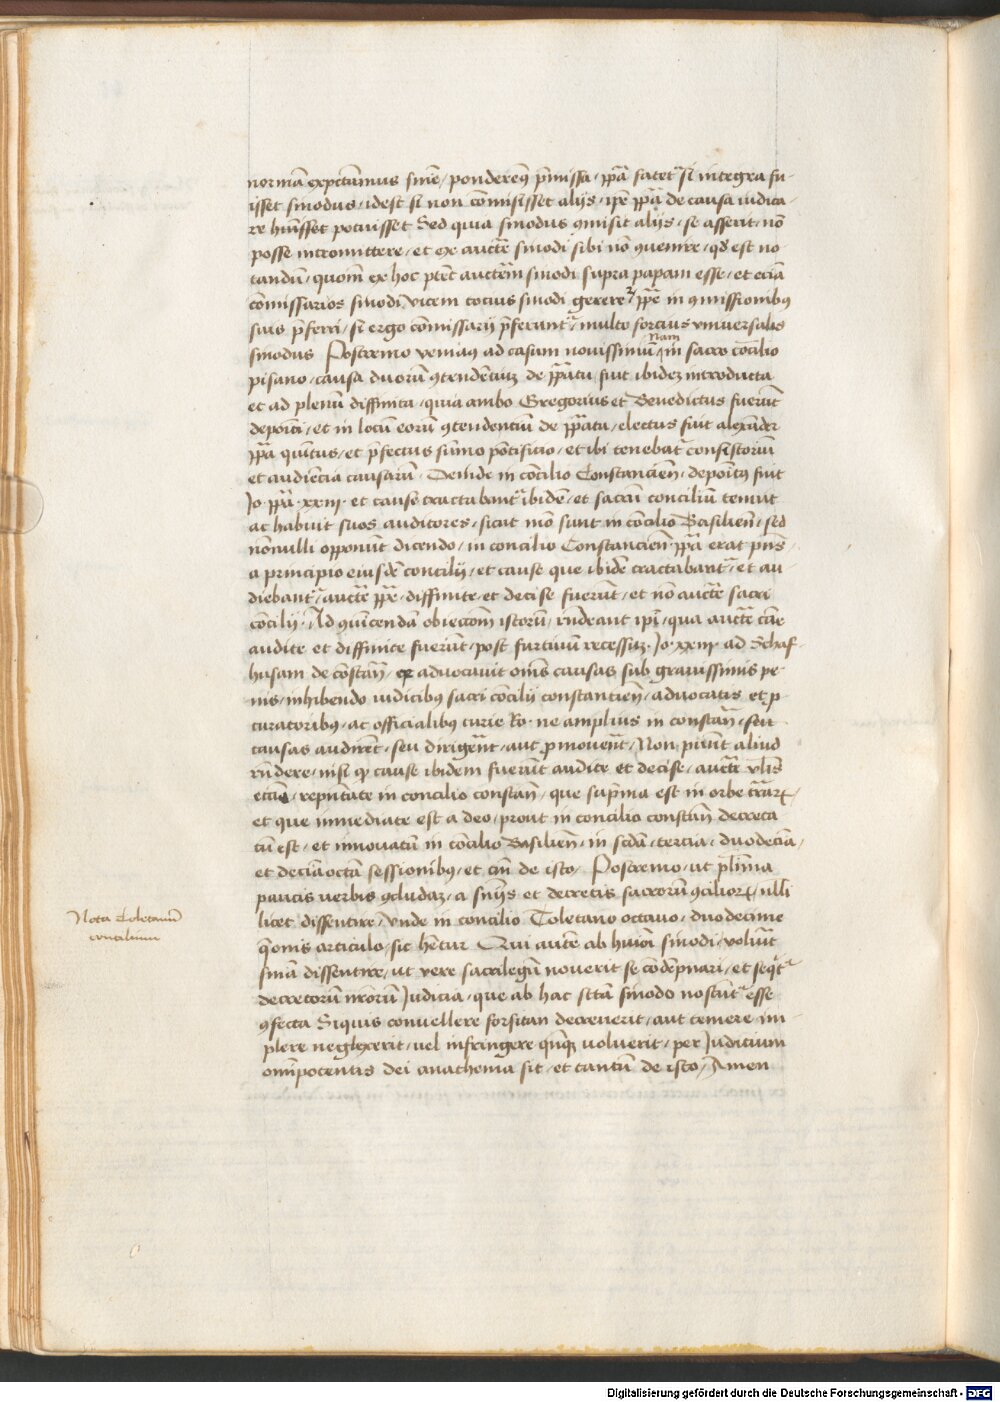 normā expectamus sine / ponderem9 p̄missa / ppā fatet᷑ si integra fu-
isset sinodus / idest si non cōmisisset alijs / ipē ppā de causa iudica-
re hūisset potuisset Sed quia sinodus 9misit alijs / se asserit nō
posse intromittere / et ex aucte sinodi sibi nō 9uenire / qd est no-
tandū / quom̄ ex hoc ptet auctem sinodi supra papam esse / et eciā
cōmissarios sinodi vicem tocius sinodi gerere / ppe in 9missionibus
suis p̄ferri / si ergo cōmissarij p̄ferunt᷑ / multo forcius vniuersalis
sinodus Postremo veniam9 ad casum nouissimū / Nam in sacro cōcilio
pisano / causa duorū 9tendēcium de ppatu fuit ibidez introducta
et ad plenū diffinita / quia ambo Gregorius et Benedictus fuerūt
depoiti / et in locū eorū 9tendentiū de ppatu / electus fuit alexāder
ppā quītus / et p̄fectus sūmo pōtificio / et ibi tenebat᷑ consistoriū
et audiēcia causarū · Deinde in cōcilio Constancien̄ · depoitus fuit
Jo · ppā · xxiij · et cause tractabant᷑ ibidē / et sacrū conciliū tenuit
ac habuit suos auditores / sicut mō sunt in cōcilio Basilien̄ / sed
nōnulli opponūt dicendo / in concilio Constancien̄ · ppā erat pn̄s
a principio eiusdē concilij / et cause que ibidē tractabant᷑ / et au-
diebant᷑ / aucte ppe / diffinite et decise fuerūt / et nō aucte sacri
cōcilij · Ad 9uīcendā obiectiōm istorū / rn̄deant ipi / qua aucte cāe
audite et diffinite fuerūt / post furtiuū recessum · Jo · xxiij · ad Schaf-
husam de cōstan̄ / aduocauit om̄s causas sub grauissimis pe-
nis / inhibendo iudicibus sacri cōcilij constancien̄ / aduocatis et p-
curatoribus / ac officialibus curie Ro · ne amplius in constan̄ / seu
causas audirēt / seu dirigerēt / aut pmouerēt / Non pn̄t aliud
rn̄dere / nisi qꝫ cause ibidem fuerūt audite et decise / aucte vl̄is
eccie / repn̄tate in concilio constan̄ / que sup̄ma est in orbe terrarꝫ
et que inmediate est a deo / prout in concilio constan̄ decreta-
tū est / et innouatū in cōcilio Basilien̄ · in scda / tercia / duodecīa /
et decīa octā sessionibus / et tm̄ de isto / Postremo / ut pl̄ima
paucis verbis 9cludam / a sn̄ijs et decretis sacrorū 9ciliorꝫ / nulli
licet dissentire / Vnde in concilio Toletano octauo / duodecime
q̄onis articulo / sic hētur Qui autē ab huioi sinodi / voluit
sn̄iā dissentire / ut vere sacrilegū nouerit se cōdēpnari / et seq̄t᷑
decretorū nr̄orū Judicia / que ab hac sctā sinodo noscūt᷑ esse
9fecta Siquis convellere forsitan decreuerit / aut temere im-
plere neglexerit / uel infringere quicqꝫ uoluerit / per Judicium
om̄ipotentis dei anathema sit / et tantū de isto / Amen
Nota Toletanū
concilium
Digitalisierung gefördert durch die Deutsche Forschungsgemeinschaft - DFG